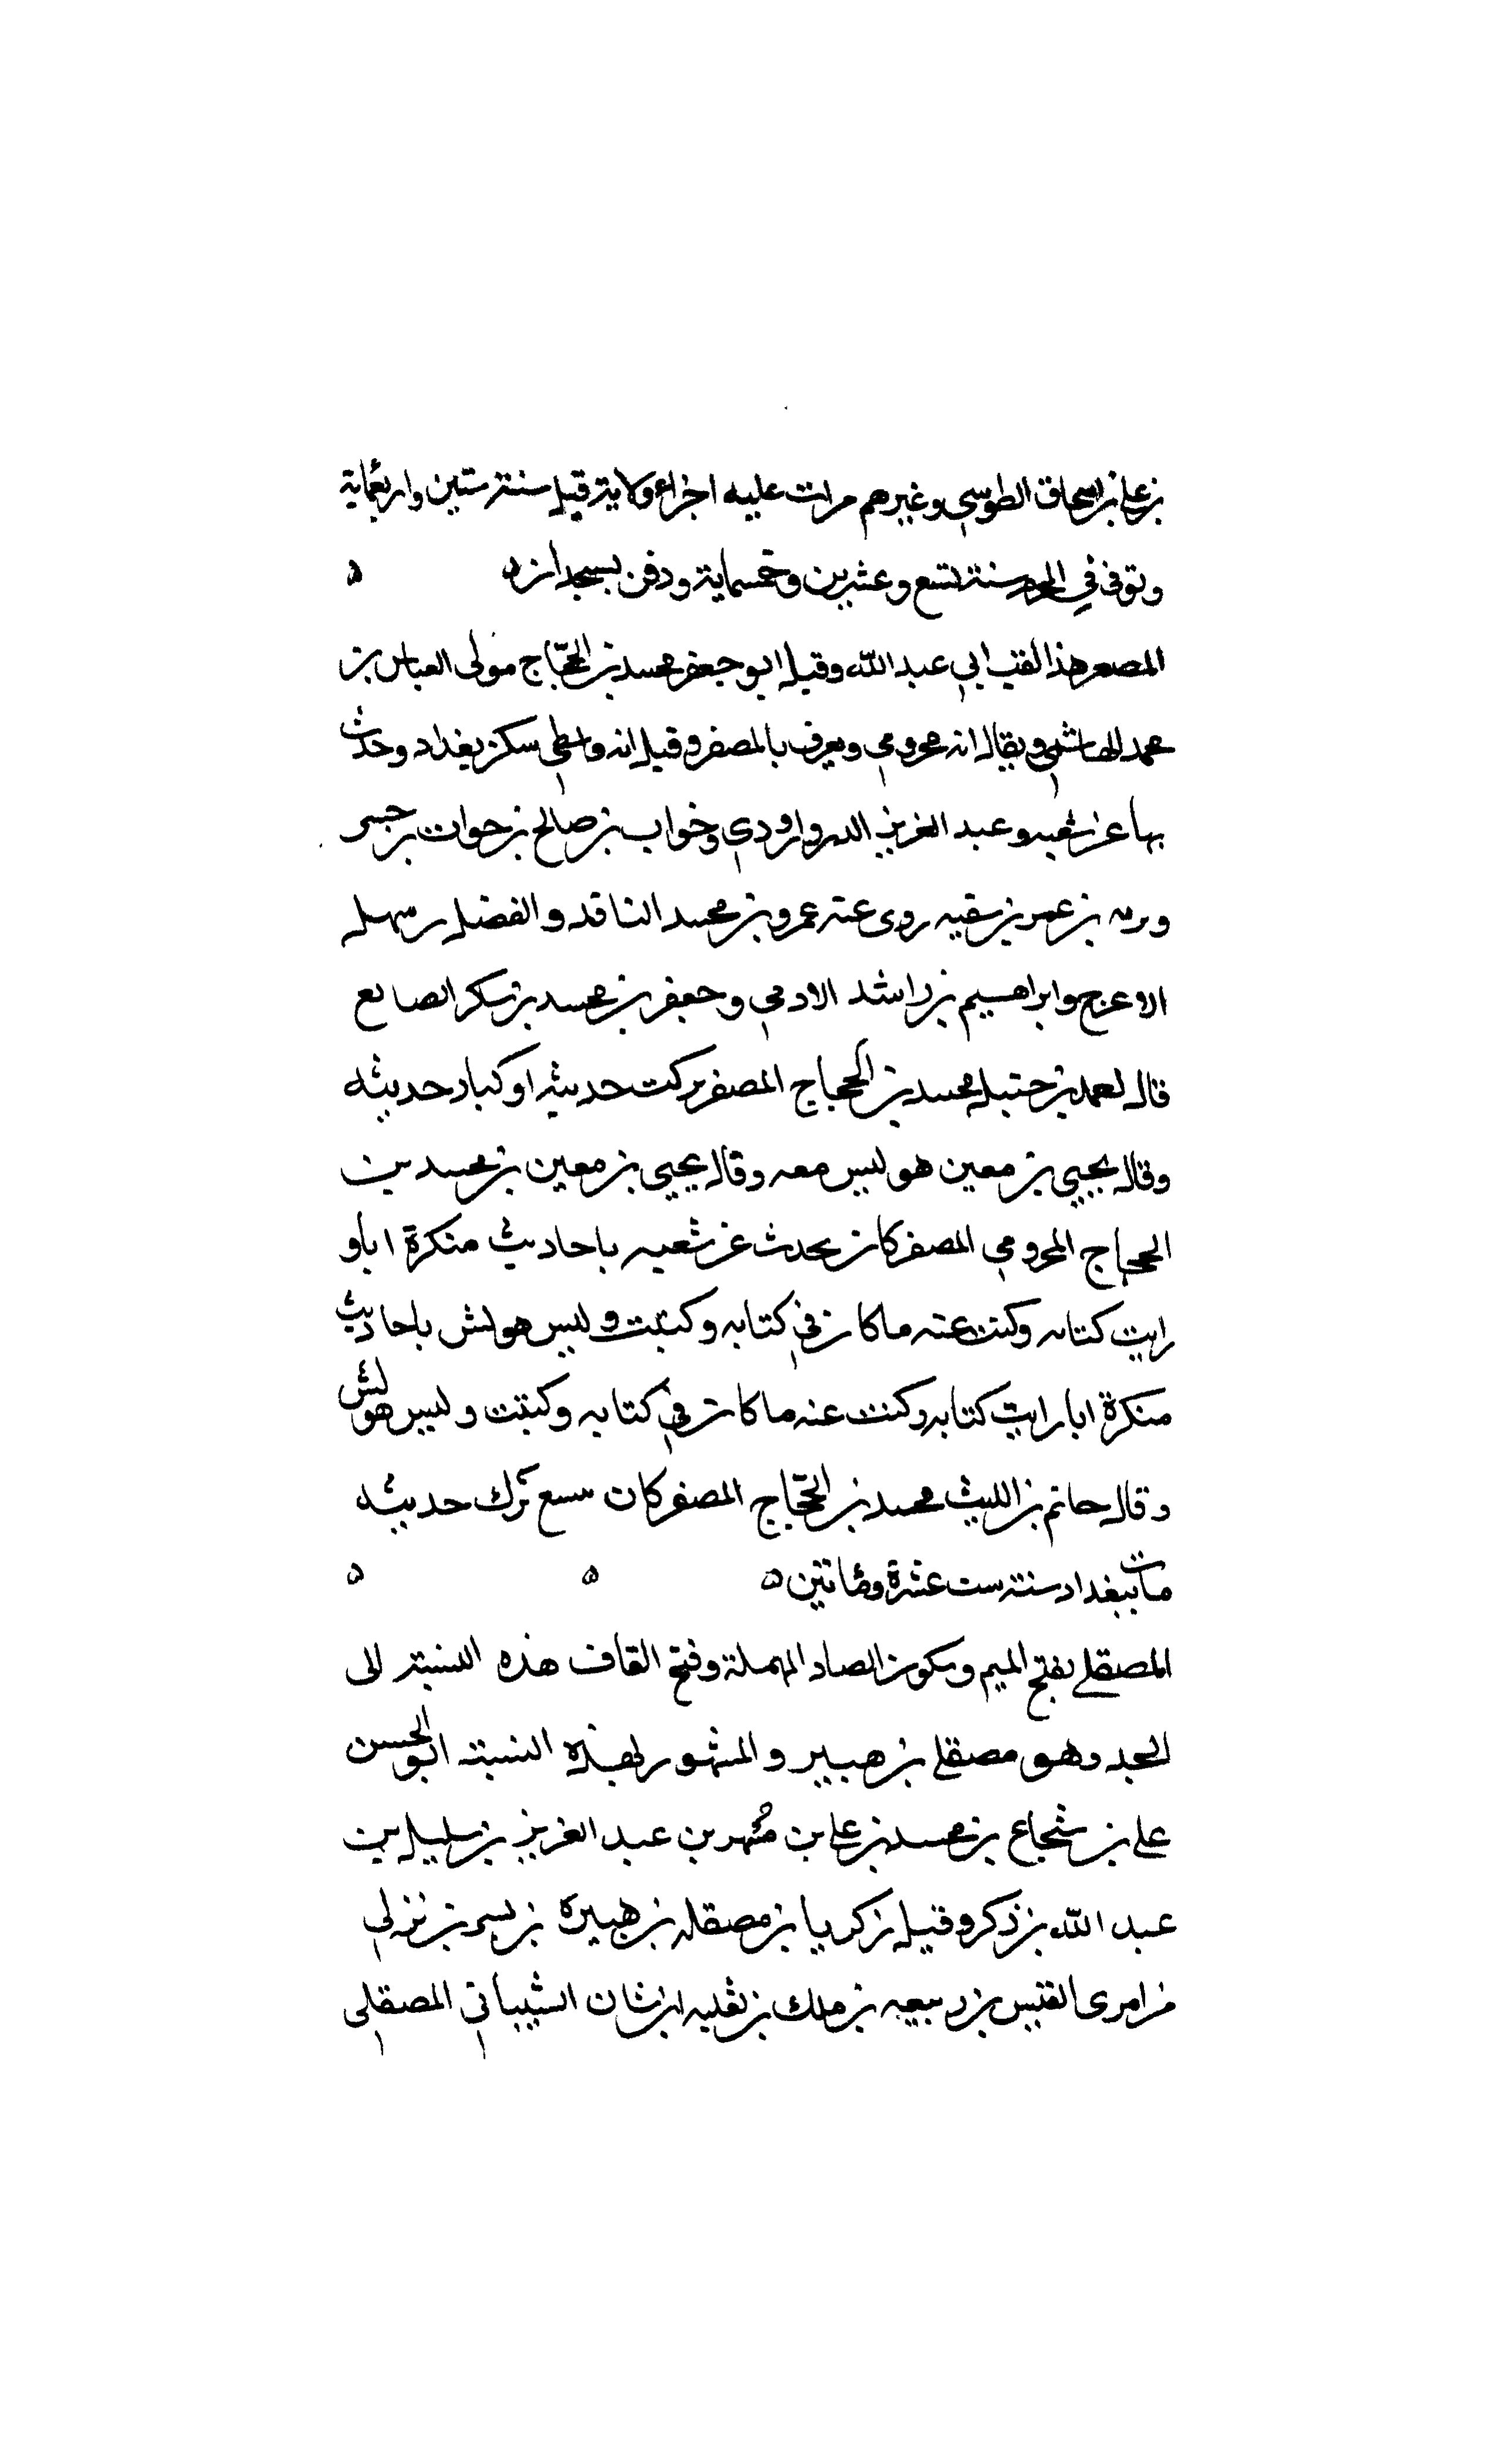 بن علي بن اسحاق الطوسي وغيرهم قرات عليه اجزا وولايته قبل سنة ستين واربعماية
وتوفي في المحرم سنة تسع وعشرين وخمسماية ودفن بسجدان ه ه
المصفر هذا لقب ابي عبد الله وقيل ابو جعفر محمد بن الحجّاج مولى العباس بن
محمد الهاشمي ويقال انه مخزومي ويعرف بالمصفر وقيل انه واسطي سكن بغداد وحدث
بها عن شعبه وعبد العزيز الدراوردي وخوات بن صالح بن خوات بن جبير
بن عمر بن سفيه روى عنه عمرو بن محمد الناقد والفضل بن سهل
الاعرج وابراهيم بن راشد الادمي وجعفر بن محمد بن شكر الصايغ
قال احمد بن حنبل محمد بن الحجاج المصفر تركت حديثه او كباد حديثه
وقال يحيى بن معين هو ليس معه وقال يحيى بن معين بن محمد بن
الحجاج المخزومي المصفر كان يحدث عن شعبه باحاديث منكرة اباو
رايت كتابه وكتبت عنه ما كان في كتابه وكتبت وليس هو بشي باحاديث
منكرة انا رايت كتابه وكتبت عنه ما كان في كتابه وكتبت وليس هو بشي
وقال حاتم بن الليث محمد بن الحجّاج المصفر كان سمع ترك حديثه
مات ببغداد سنة ست عشرة ومائتين ه ه ه
المصقلي بفتح الميم وسكون الصاد المهملة وفتح القاف هذه النسبة الى
الجد وهو مصقلة بن هبير والمشهور بهذه النسبة ابو الحسن
علي بن شجاع بن محمد بن علي بن مُسْهر بن عبد العزيز بن سليل بن
عبد الله بن ذكر وقيل زكريا بن مصقله بن هبيرة بن
بن امرى القيس بن ربيعه بن ملك بن ثعلبه ابن شان الشيباني المصقلي